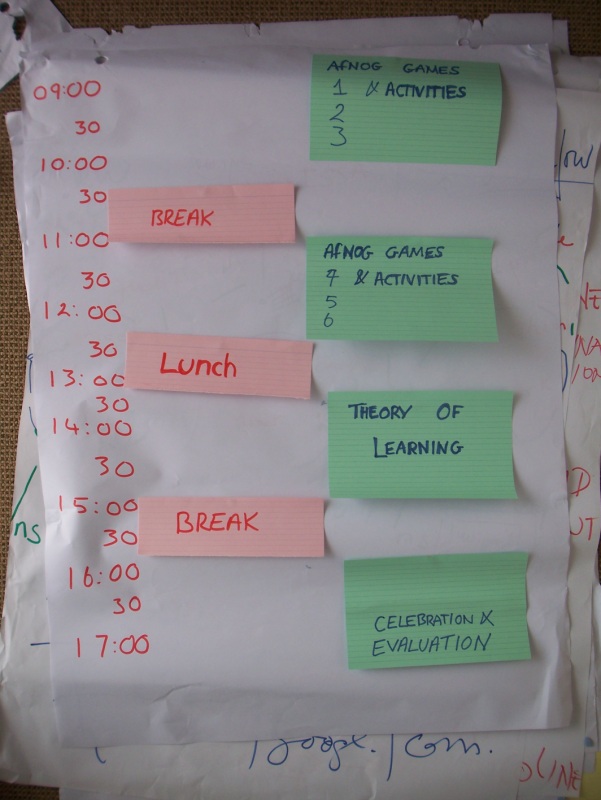 09:00
AfNOG GAMES
1 & ACTIVITIES
2
30
3
10:00
30
BREAK
11:00
AfNOG GAMES
4 & ACTIVITIES
30
5
12:00
6
30
Lunch
13:00
30
THEORY OF
14:00
LEARNING
30
15:00
BREAK
30
16:00
30
CELEBRATION &
EVALUATION
17:00